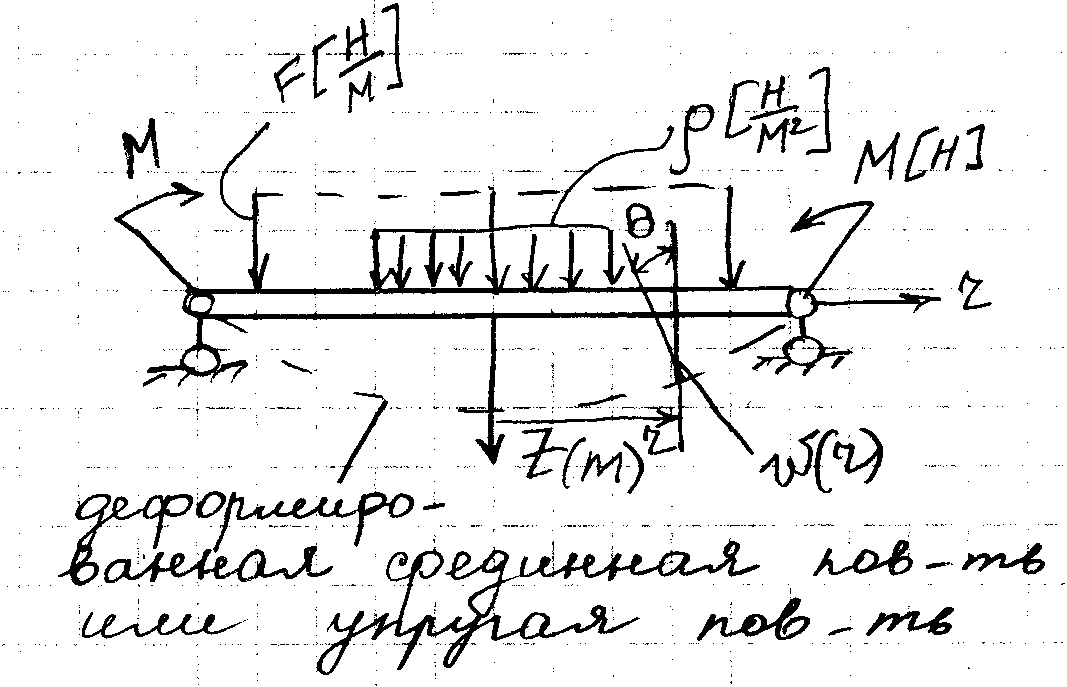 F[Н/М]
ρ[Н/М²]
М
М[Н]
θ
r
Z(m)
r
w(r)
деформиро-
ванная срединная пов-ть
или упругая пов-ть